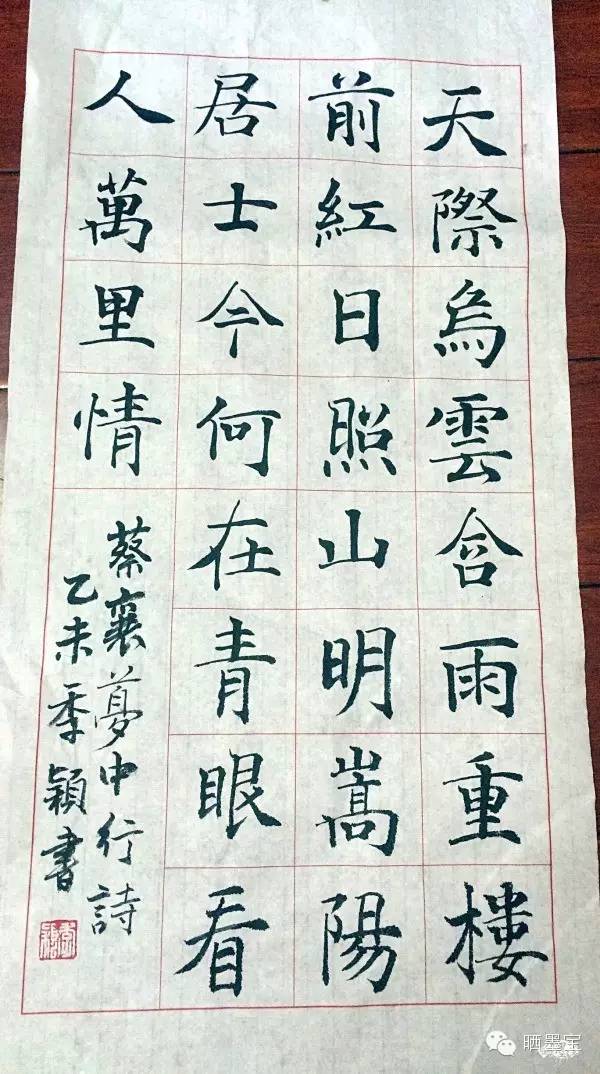 天際烏雲含雨重樓
前紅日照山明嵩陽
居士今何在青眼看
人萬里情
蔡襄夢中行詩
乙未季穎書
晒墨宝